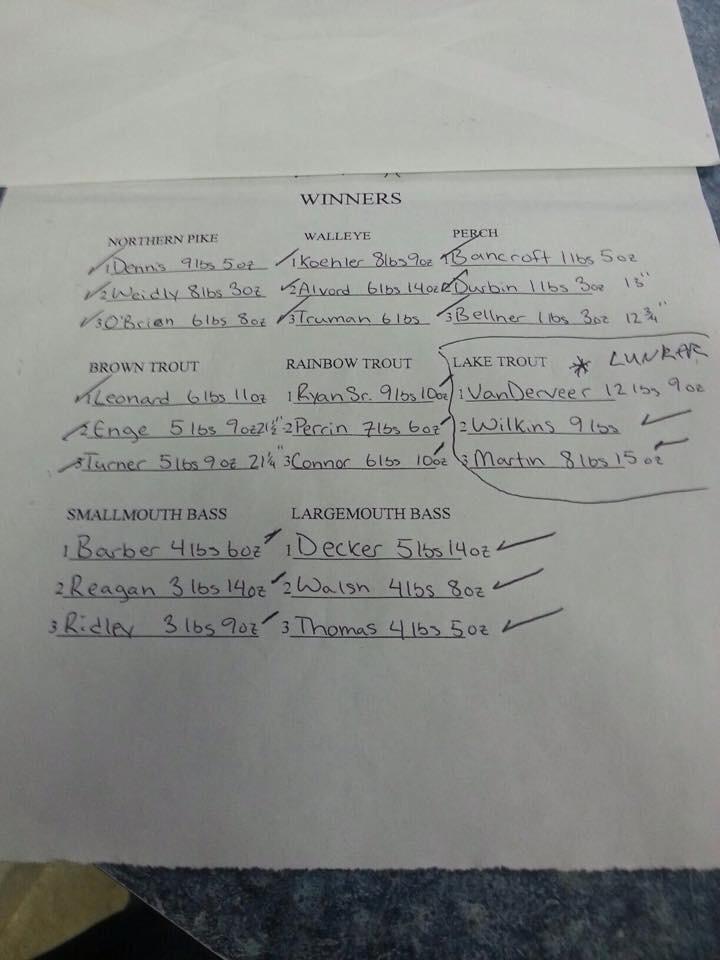 WINNERS
NORTHERN PIKE WALLEYE PERCH
1 Dennis 9lbs 5oz 1 Koehler 8lbs 9oz 1 Bancroft 1lbs 5oz
2 Weidly 8lbs 3oz 2 Alvord 6lbs 14oz 2 Durbin 1lbs 3oz 13"
3 O'Brian 6lbs 8oz 3 Truman 6lbs 3 Bellner 1lbs 3oz 12 3/4"
BROWN TROUT RAINBOW TROUT LAKE TROUT * LUNKAR
1 Leonard 6lbs 11oz 1 Ryan Sr. 9lbs 10oz 1 VanDerveer 12lbs 9oz
2 Enge 5lbs 9oz 21 1/2" 2 Perrin 7lbs 6oz 2 Wilkins 9lbs
3 Turner 5lbs 9oz 21 1/4" 3 Connor 6lbs 10oz 3 Martin 8lbs 15oz
SMALLMOUTH BASS LARGEMOUTH BASS
1 Barber 4lbs 6oz 1 Decker 5lbs 14oz
2 Reagan 3lbs 14oz 2 Walsh 4lbs 8oz
3 Ridley 3lbs 9oz 3 Thomas 4lbs 5oz